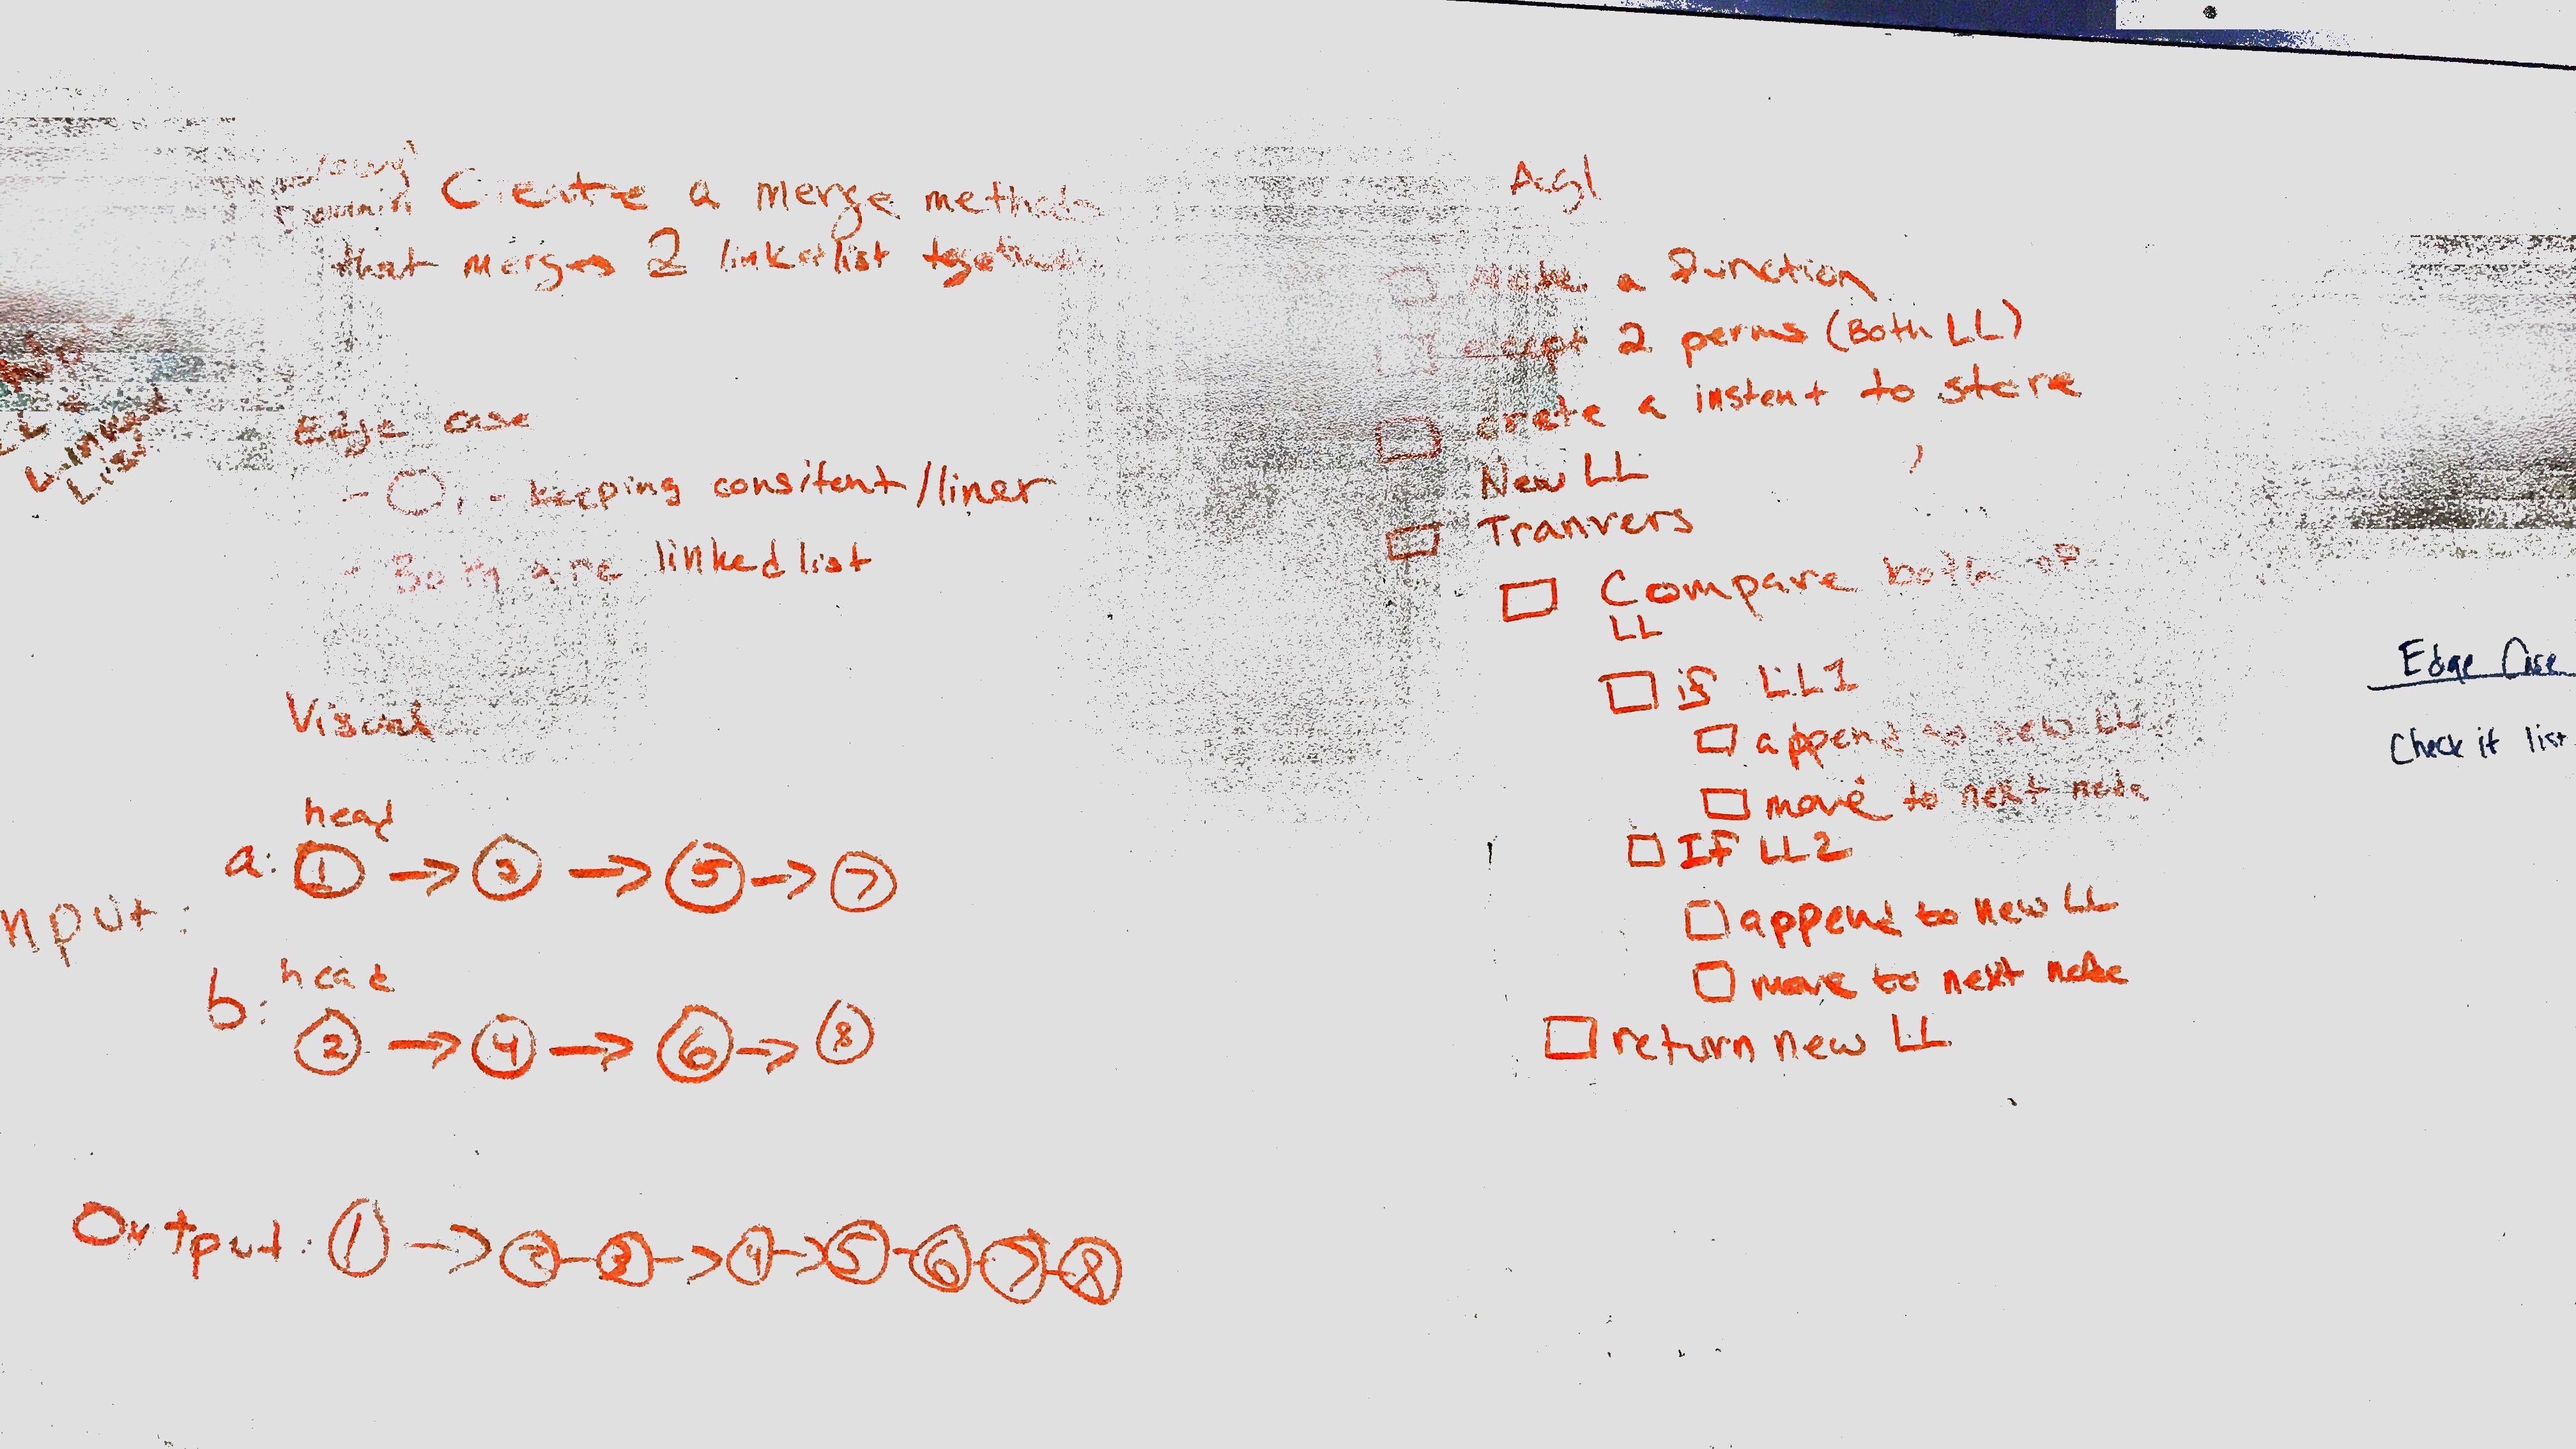 Create a merge method
that merges 2 linkedlist together
Edge case
- O, - keeping consitent/liner
- Both are linked list
Visual
head
a: 1 → 3 → 5 → 7
nput:
head
b: 2 → 4 → 6 → 8
Output: 1 → 2 - 3 → 4 → 5 - 6 - 7 - 8
Linked
List
Agl
Make a function
accept 2 perms (Both LL)
crete a instent to store
New LL
Tranvers
Compare both of
LL
if LL1
append to new LL
move to next node
If LL2
append to new LL
move to next node
return new LL
Edge Case
Check if list